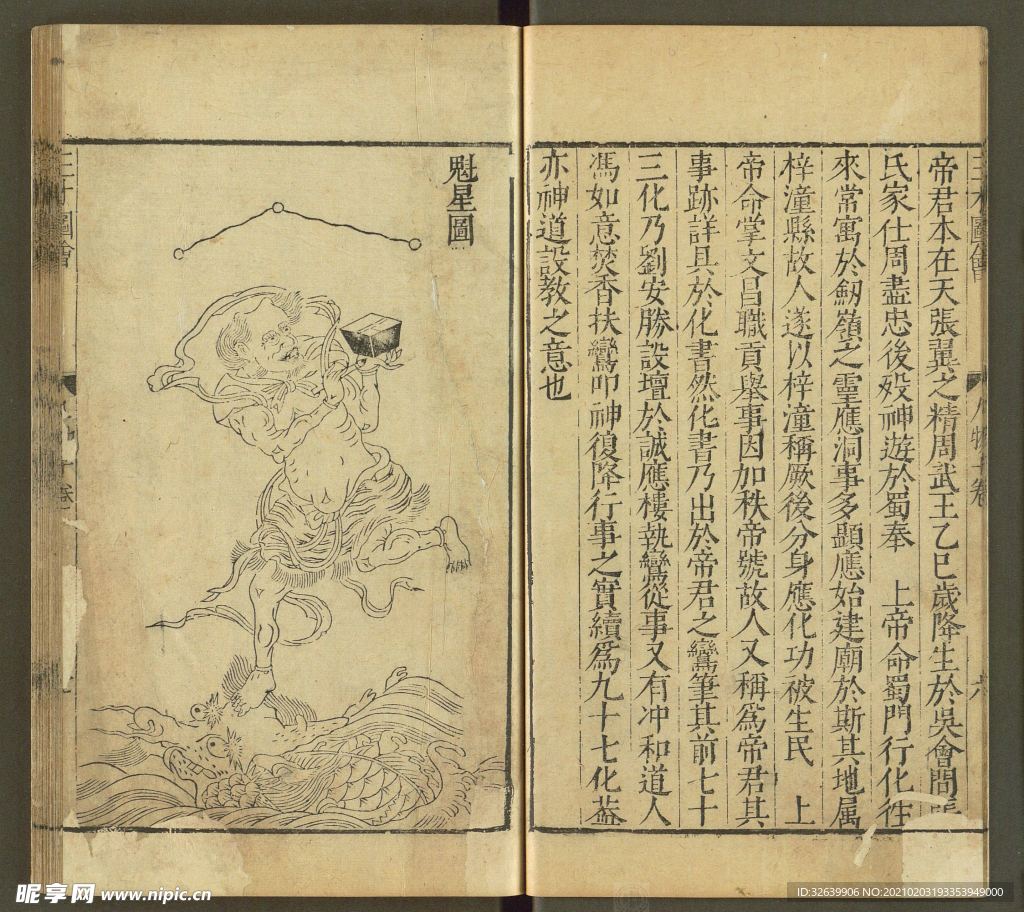 帝君本在天張翼之精周武王乙巳歲降生於吳會間張
氏家仕周盡忠後殁神遊於蜀奉 上帝命蜀門行化往
來常寓於劒嶺之靈應洞事多顯應始建廟於斯其地属
梓潼縣故人遂以梓潼稱厥後分身應化功被生民 上
帝命掌文昌職貢舉事因加秩帝號故人又稱為帝君其
事跡詳具於化書然化書乃出於帝君之鸞筆其前七十
三化乃劉安勝設壇於誠應樓執鸞從事又有冲和道人
馮如意焚香扶鸞叩神復降行事之實續為九十七化葢
亦神道設教之意也
魁星圖
三才圖會
人物十卷
六
三才圖會
十卷
昵享网 www.nipic.cn
ID:32639906 NO:20210203193353949000